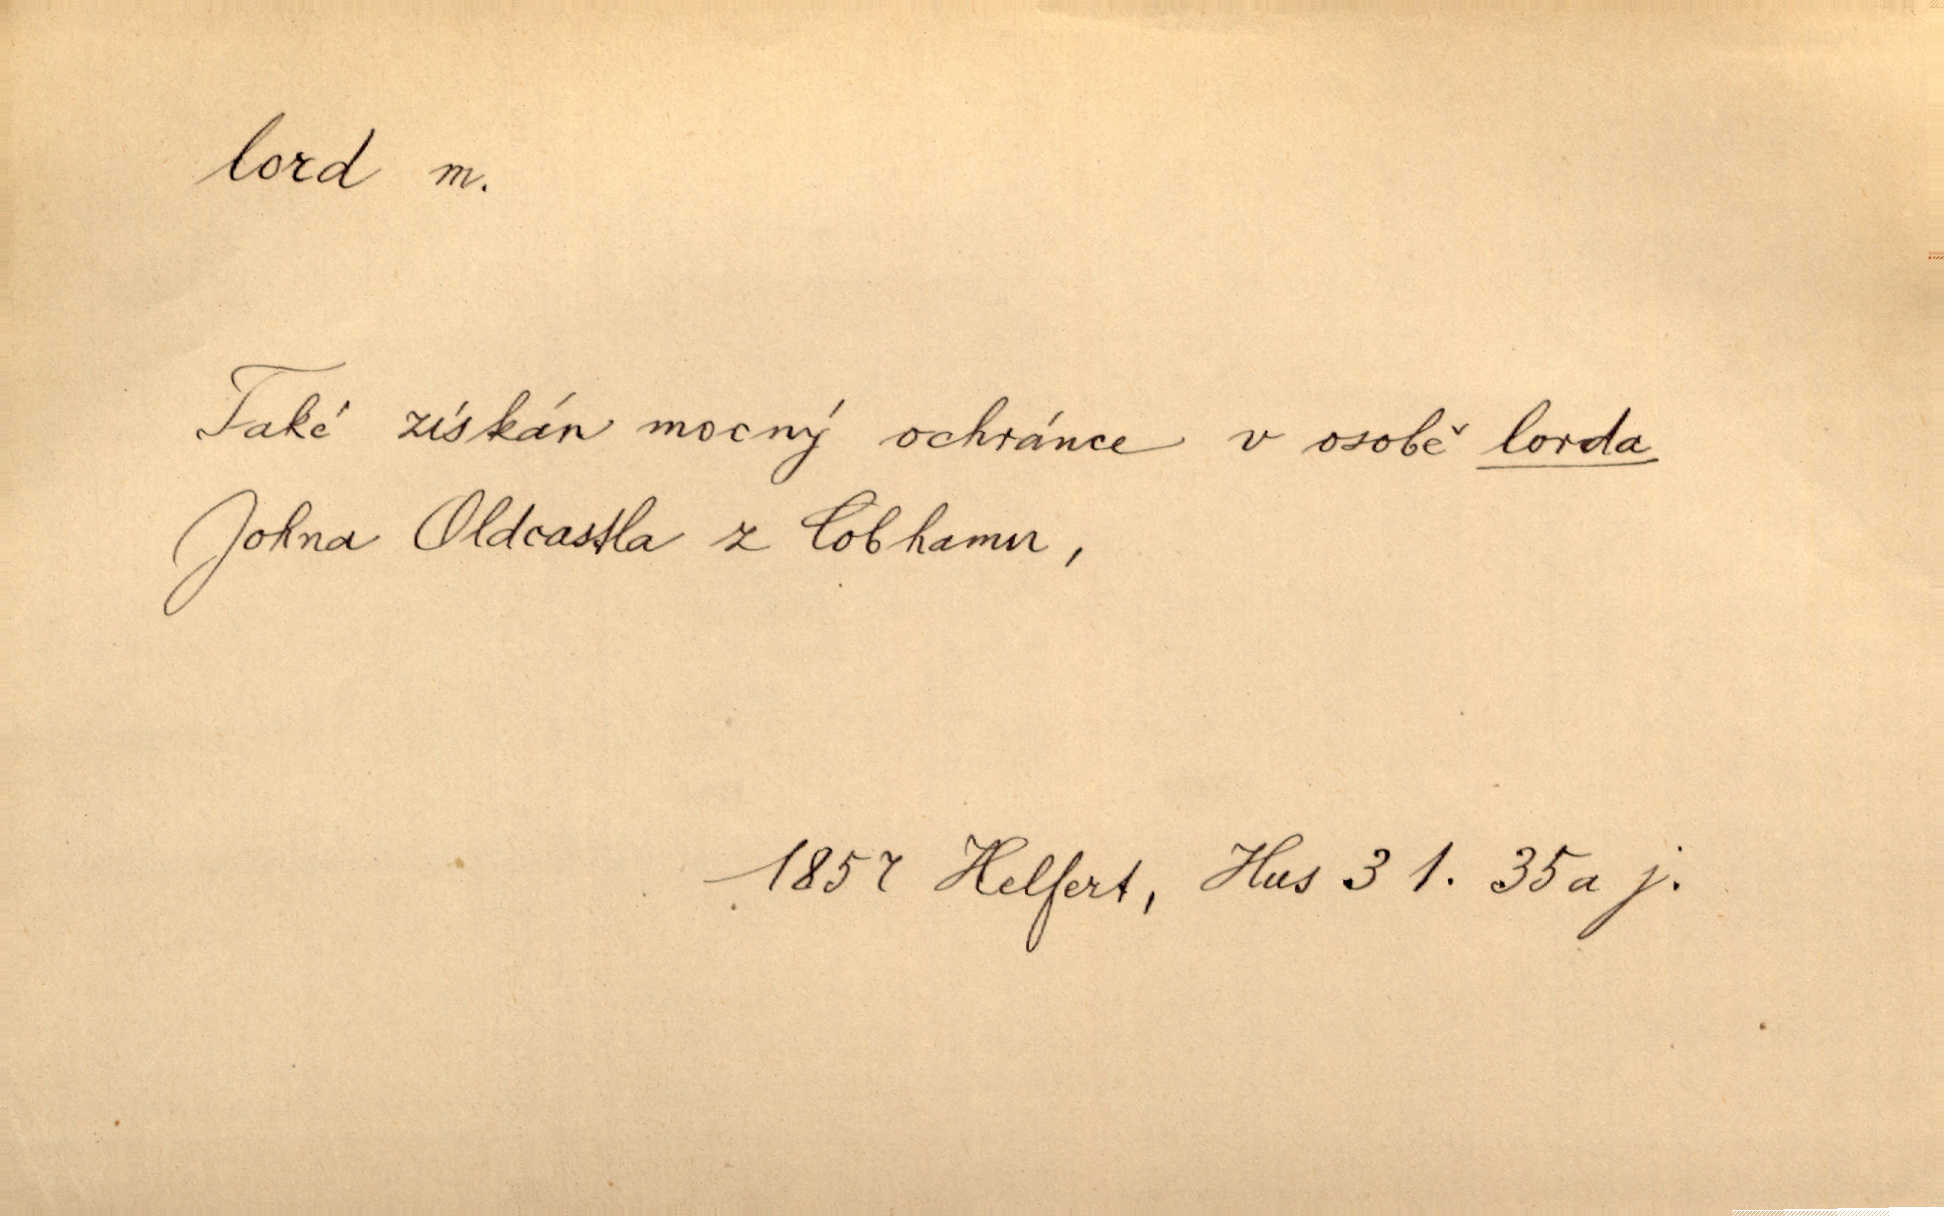 lord m.
Také získán mocný ochránce v osobě lorda
Johna Oldcastla z Cobhamu,
1857 Helfert, Hus 31. 35a j.